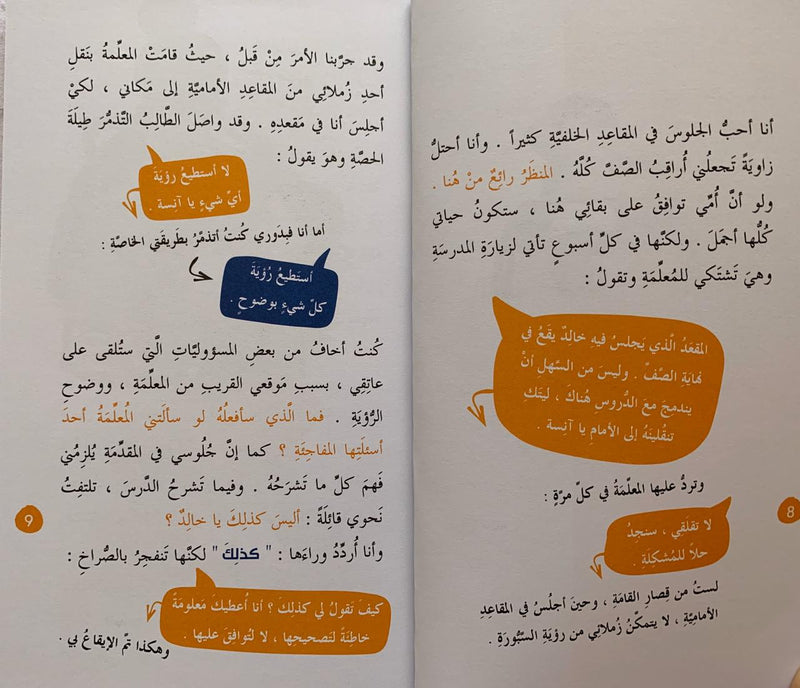 أنا أحبُّ الجلوسَ في المقاعدِ الخلفيَّةِ كثيراً . وأنا أحتلُّ
زاويَةً تَجعلُني أُراقِبُ الصَّفَّ كُلَّهُ . المنظَرُ رائِعٌ منْ هُنا .
ولو أنَّ أُمِّي توافِقُ على بقائِي هُنا ، ستكونُ حياتي
كُلُّها أجمَلَ . ولكنَّها في كلِّ أسبوعٍ تأتي لزيارَةِ المدرسَةِ
وهيَ تَشتَكي للمُعلِّمَةِ وتقولُ :
المقعَدُ الَّذي يَجلسُ فيهِ خالدٌ يقَعُ في
نهايَةِ الصَّفِّ . وليسَ من السَّهلِ أنْ
يندمِجَ معَ الدُّروسِ هُناكَ ، ليتَكِ
تنقُلينَهُ إلى الأمامِ يا آنِسة .
وتردُّ عليها المعلِّمَةُ في كلِّ مرَّةٍ :
لا تقلَقي ، سنجِدُ
حلاً للمُشكِلَةِ .
لستُ من قِصارِ القامَةِ ، وحينَ أجلُسُ في المقاعِدِ
الأماميَّةِ ، لا يتمكَّنُ زُملائي من رؤيَةِ السَّبُّورَةِ .
8
وقد جرَّبنا الأمرَ مِنْ قَبلُ ، حيثُ قامَتْ المعلِّمةُ بنَقلِ
أحدِ زُملائِي منَ المقاعِدِ الأماميَّةِ إلى مَكاني ، لكيْ
أجلِسَ أنا في مَقعدِهِ . وقد واصَلَ الطَّالِبُ التَّذمُّرَ طِيلَةَ
الحصَّةِ وهوَ يقولُ :
لا أستطيعُ رؤيَةَ
أيِّ شيءٍ يا آنِسة .
أما أنا فبِدَوري كُنتُ أتذمَّرُ بطَريقَتي الخاصَّةِ :
أستَطيعُ رُؤيَةَ
كلِّ شيءٍ بوضوحٍ .
كُنتُ أخافُ من بعضِ المسؤوليَّاتِ الَّتي ستُلقى على
عاتِقِي ، بسببِ مَوقعي القريبِ من المعلِّمَةِ ، ووضوحِ
الرُّؤيَةِ . فما الَّذي سأفعلُهُ لو سألَتني المُعلِّمَةُ أحدَ
أسئلَتِها المفاجِئَةِ ؟ كما إنَّ جُلُوسي في المقدِّمَةِ يُلزِمُني
فَهمَ كلِّ ما تَشرَحُهُ . وفيما تَشرحُ الدَّرسَ ، تلتفِتُ
نَحوي قائِلَةً : أليسَ كذلِكَ يا خالِدُ ؟
وأنا أُردِّدُ وراءَها : " كذلِكَ " لكنَّها تَنفجرُ بالصُّراخِ :
كيفَ تَقولُ لي كذلِكَ ؟ أنا أُعطيكَ مَعلومَةً
خاطِئَةً لتَصحيحِها ، لا لتُوافِقَ عليها .
وهكذا تمَّ الإيقاعُ بي .
9